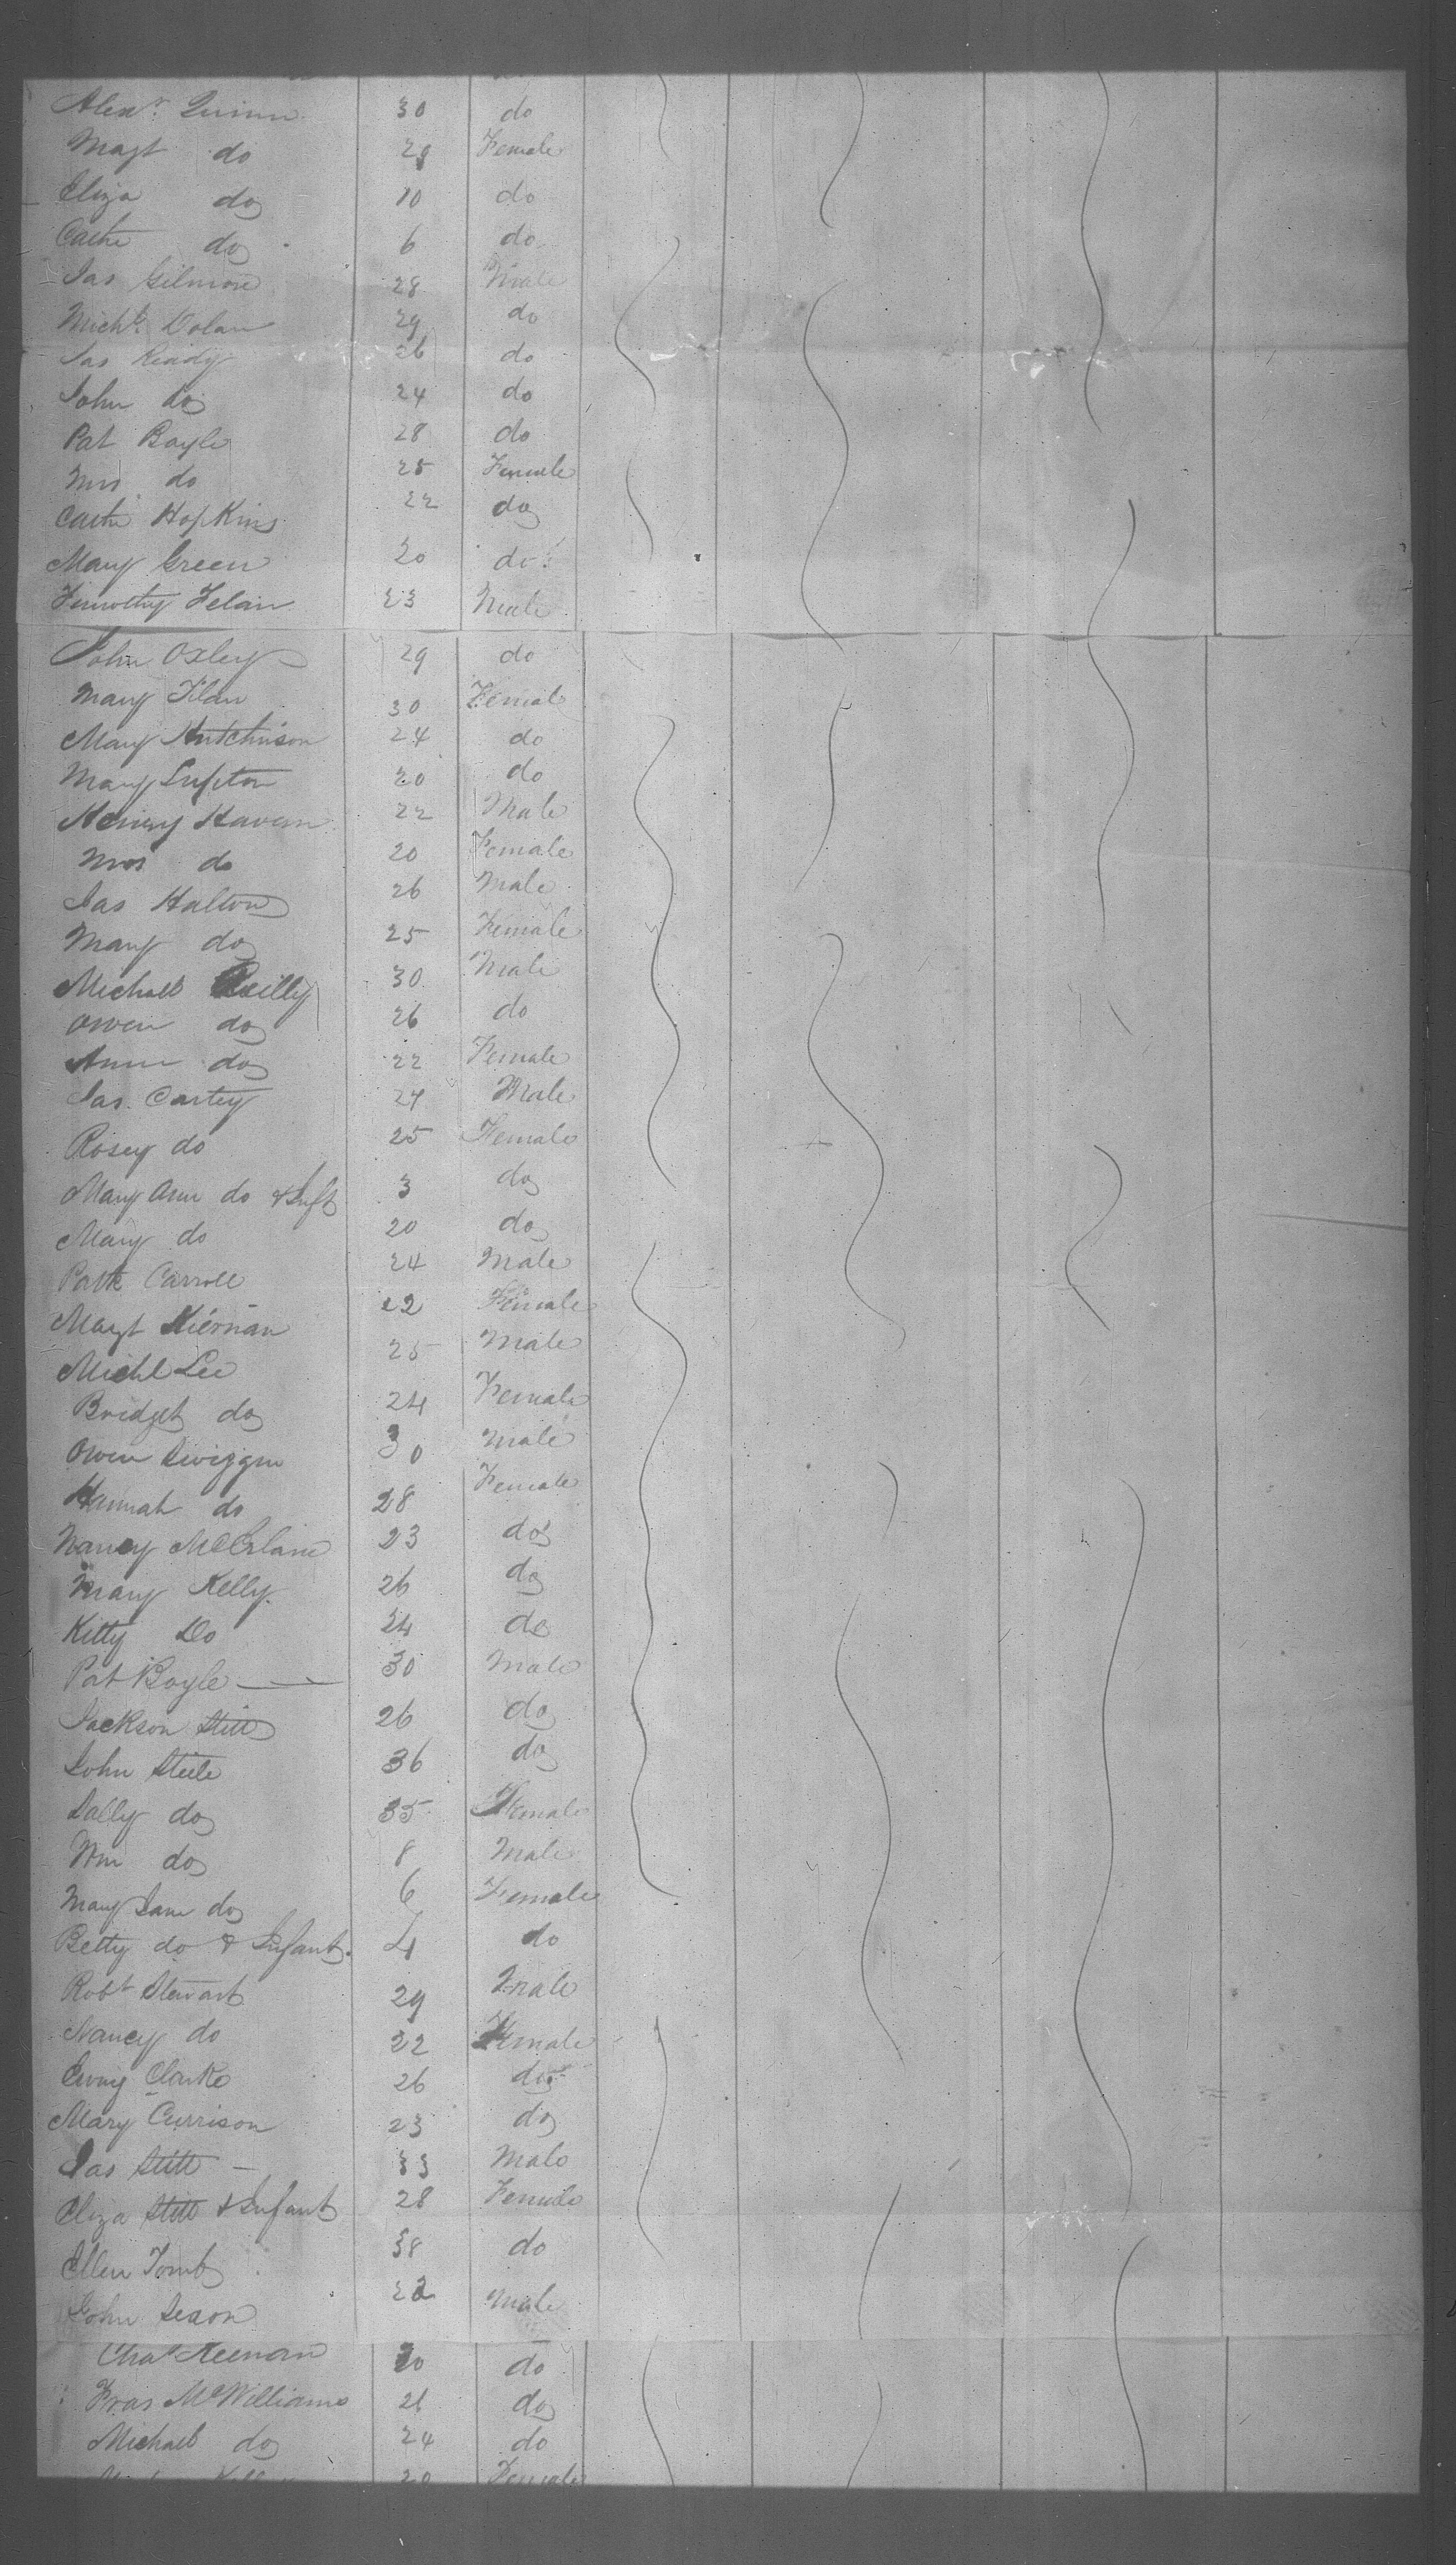 Alexr. Quinn 30 do
Magt do 28 Female
Eliza do 10 do
Cathe do 6 do
Jas Gilmore 28 Male
Michl. Dolan 29 do
Jas Ready 26 do
John do 24 do
Pat Boyle 28 do
Mrs do 25 Female
Cathe Hopkins 22 do
Mary Green 20 do
Timothy Felan 23 Male
John Oxley 29 do
Mary Filan 30 Female
Mary Hutchinson 24 do
Mary Lupton 20 do
Henry Havern 22 Male
Mrs do 20 Female
Jas Halton 26 Male
Mary do 25 Female
Michael Reilly 30 Male
Owen do 26 do
Ann do 22 Female
Jas. Cartey 27 Male
Rosey do 25 Female
Mary Ann do & Inft 3 do
Mary do 20 do
Patk Carroll 24 Male
Magt Kiernan 22 Female
Michl Lee 25 Male
Bridget do 24 Female
Owen Swiggin 30 Male
Hannah do 28 Female
Nancy McErlane 23 do
Mary Kelly. 26 do
Kitty Do 24 do
Pat Boyle 30 Male
Jackson Stitt 26 do
John Steele 36 do
Sally do 35 Female
Wm do 8 Male
Mary Jane do 6 Female
Betty do & Infant. 4 do
Robt Stewart 29 Male
Nancy do 22 Female
Clarke 26 do
Mary Currison 23 do
Jas Stitt 33 Male
Eliza Stitt & Infant 28 Female
Ellen Tomb 38 do
John Sexon 22 Male
Chas Keenan 20 do
Fras McWilliams 26 do
Michael do 24 do
20 Female